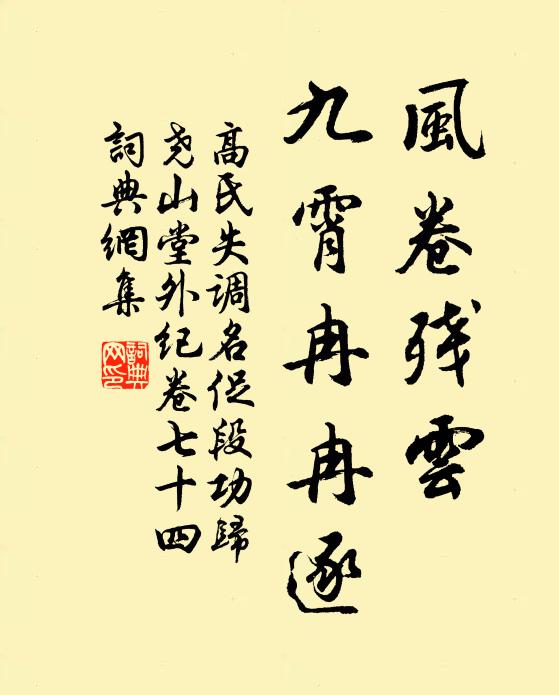 風卷殘雲
九霄冉冉逐
高氏失調名促段功歸
堯山堂外紀卷七十四
詞典網集
詞典網印